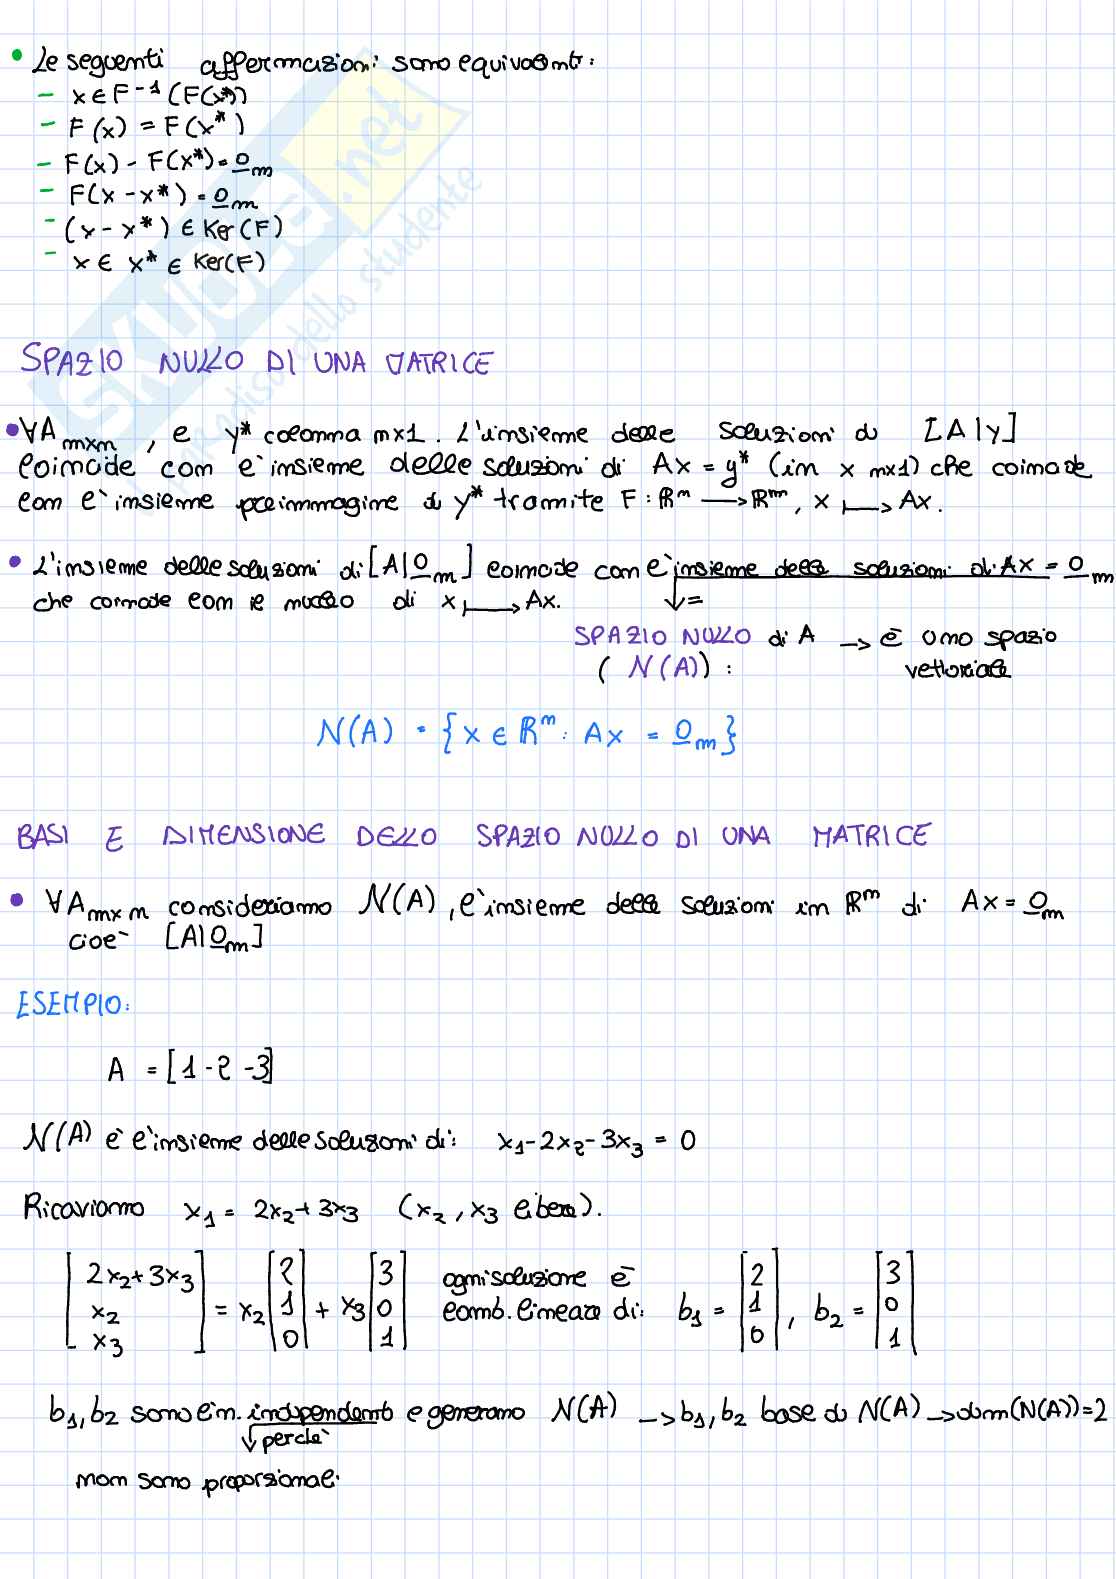 • Le seguenti affermazioni sono equivalenti:
- x ∈ F⁻¹ (F(x*))
- F(x) = F(x*)
- F(x) - F(x*) = 0_m
- F(x - x*) = 0_m
- (x - x*) ∈ Ker(F)
- x ∈ x* ∈ Ker(F)
SKUOLA.net
paradiso dello studente
SPAZIO NULLO DI UNA MATRICE
• ∀A_mxn, e y* colonna mx1. L'insieme delle soluzioni di [A|y]
coincide con l'insieme delle soluzioni di Ax = y* (in x nx1) che coincide
con l'insieme preimmagine di y* tramite F: ℝⁿ → ℝᵐ, x ↦ Ax.
• L'insieme delle soluzioni di [A|0_m] coincide con l'insieme delle soluzioni di Ax = 0_m
che coincide con il nucleo di x ↦ Ax. ↓=
SPAZIO NULLO di A → è uno spazio
(N(A)): vettoriale
N(A) = {x ∈ ℝⁿ: Ax = 0_m}
BASI E DIMENSIONE DELLO SPAZIO NULLO DI UNA MATRICE
• ∀A_mxn consideriamo N(A), l'insieme delle soluzioni in ℝⁿ di Ax = 0_m
cioè [A|0_m]
ESEMPIO:
A = [1 -2 -3]
N(A) è l'insieme delle soluzioni di: x₁ - 2x₂ - 3x₃ = 0
Ricaviamo x₁ = 2x₂ + 3x₃ (x₂, x₃ libere).
[2x₂+3x₃ x₂ x₃] = x₂ [2 1 0] + x₃ [3 0 1] ogni soluzione è comb. lineare di: b₁ = [2 1 0], b₂ = [3 0 1]
b₁, b₂ sono lin. indipendenti e generano N(A) → b₁, b₂ base di N(A) → dim(N(A))=2
↓ perché
non sono proporzionali.